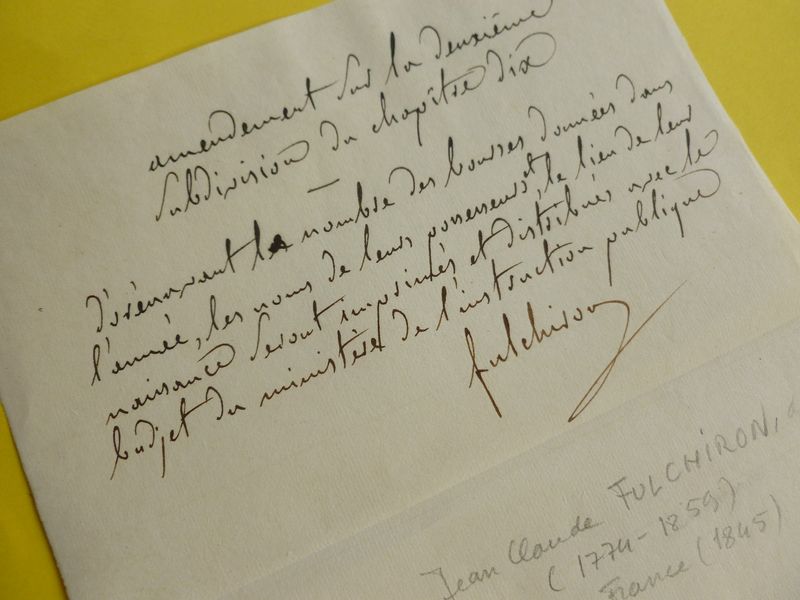 amendement sur la deuxième
subdivision du chapître dix
d'orénavant le nombre des bourses données dans
l'année, les noms de leurs possesseurs et le lieu de leur
naissance seront imprimés et distribués avec le
budjet du ministère de l'instruction publique
fulchiron
Jean Claude FULCHIRON,
(1774-1859)
France (1845)